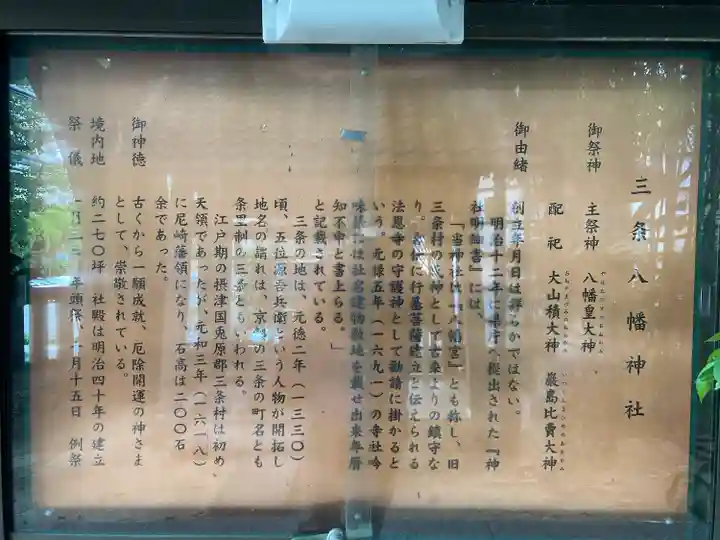 三条八幡神社
御祭神　主祭神　八幡皇大神
配祀　大山積大神　厳島比賣大神
御由緒
創立年月日は詳らかでない。
明治十二年に県庁へ提出された『神
社明細書』には、
「当神社は『八幡宮』とも称し、旧
三条村の氏神として古来よりの鎮守な
り。お伝に行基菩薩建立と伝えられる
法恩寺の守護神として勧請に掛かると
いう。元禄五年（一六九一）の寺社吟
味には社名建物敷地を載せ出来年暦
知不申と書上らる。」
と記載されている。
三条の地は、元徳二年（一三三〇）
頃、五位源吾兵衛という人物が開拓し
地名の謂れは、京都の三条の町名とも
条里制の三条ともいわれる。
江戸期の摂津国兎原郡三条村は初め、
天領であったが、元和三年（一六一八）
に尼崎藩領になり、石高は二〇〇石
余であった。
御神徳　古くから一願成就、厄除開運の神さま
として、崇敬されている。
境内地　約二七〇坪　社殿は明治四十年の建立
祭儀　年頭祭、十月十五日　例祭